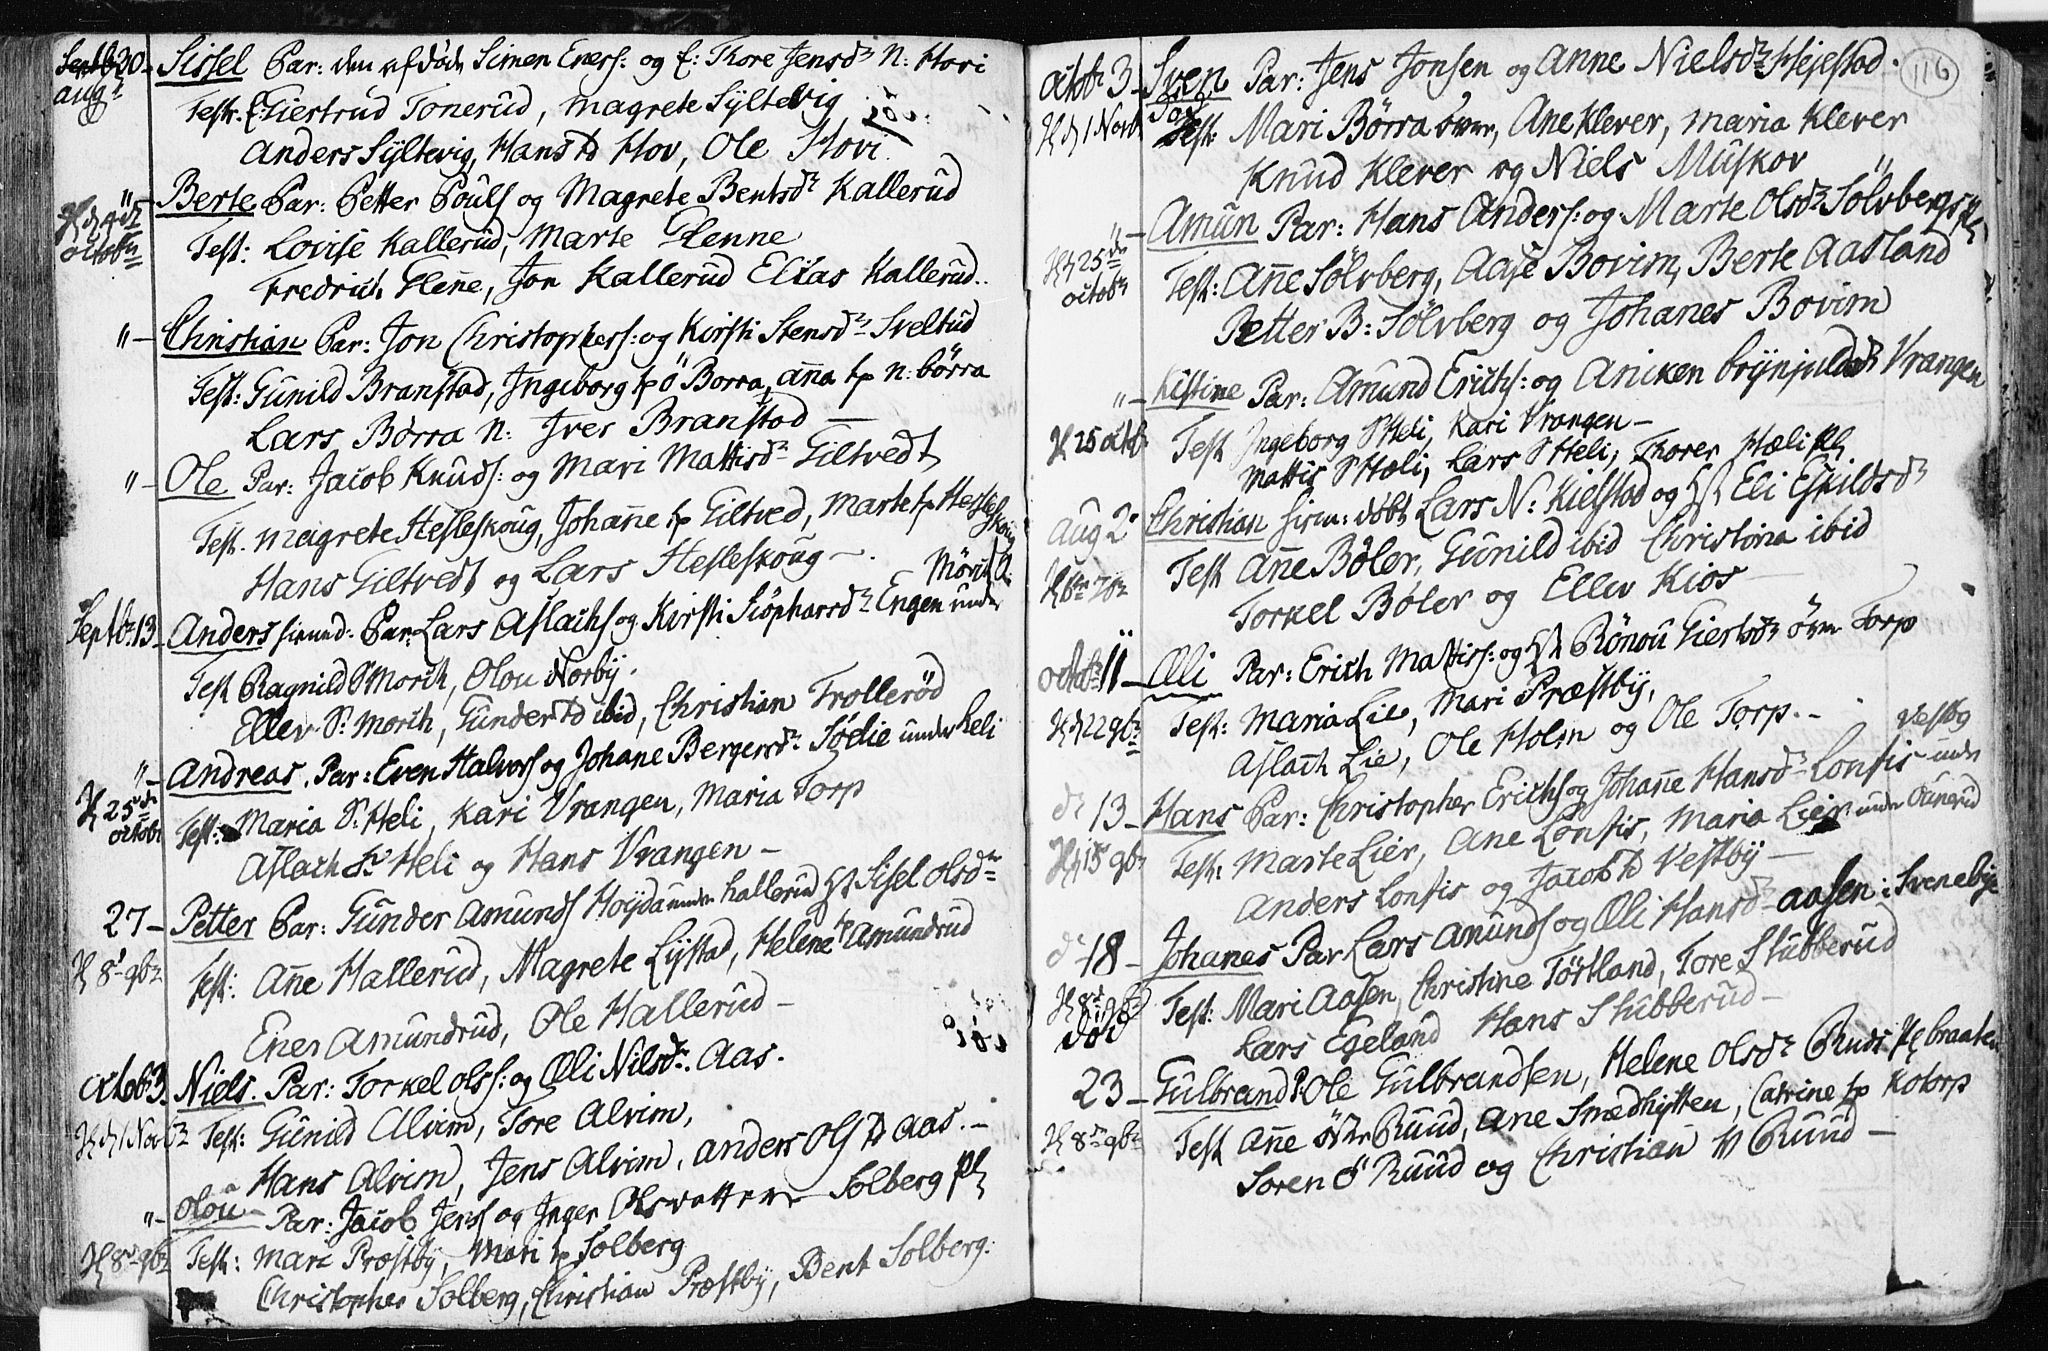 30 Sissel Par: den afdøde Simen Eners: og E: Thore Jensdr N: Hovi
aug
Test: E: Giertrud Tonerud, Magrete Syltevig
Anders Syltevig, Hans td Hov, Ole Hovi.
" Berte Par: Petter Pouls og Magrete Bentsdr Kallerud
octobr
Test: Lovise Kallerud, Marte Glenne
Fredrich Glene, Jon Kallerud Elias Kallerud..
" Christian Par: Jon Christophers: og Kirsti Stensdr Sveltud
Test: Gunild Branstad, Ingeborg tp ö Borra, Anna tp n: börra
Lars Börra N: Iver Branstad
" Ole Par: Jacob Knuds: og Mari Mattisdr Giltvedt
Test. Magrete Hesleskoug, Johañe tp Giltved, Marte tp Hesleskoug
Hans Giltvedt og Lars Hesleskoug
Septbr 13 Anders Par Lars Aslachs og Kirsti Engen under
Test Ragnild S Morch, Olou Norby.
Ellev S: Morch, Gunder td ibid, Christian Trollerød
" Andreas. Par: Even Halvors og Johane Bergersdr Tødie under heli
H 25de octobr
Test: Maria S: Heli, Kari Vrangen, Maria Torp
Aslach S: Heli og Hans Vrangen
27 Petter Par: Gunder Amunds Hoyda under hallerud Sisel olsdr
H 8 9br
Test: Añe Hallerud, Magrete Lystad, Helene tp Amundrud
Ener Amundrud, Ole Hallerud
octob 3. Niels. Par: Torkel ols: og Æli Nilsdr. Aas.
H d 1 Novbr
Test: Gunild Alvim, Tore Alvim,
Hans Alvim, Jens Alvim, anders Ols td Aas.
" Olou Par: Jacob Jens og Inger Olsdatter Solberg
H 8 9br
Test: Mari Præstby, Mari tp Solberg
Christopher Solberg, Christian Præstby, Bent Solberg:
116
octobr 3 Sven Par: Jens Jonsen og Anne Nielsdr Hejestad.
H d 1 Novbr
Test: Mari Børra, Ane Klever, Maria Klever
Knud Klever og Niels Muskov
" Amun Par: Hans Anders: og Marte Olsdr Sølvberg
H 25de octobr
Test: Añe Sølvberg, Aase Bovim, Berte Aasland
Petter B: Sølvberg og Johanes Bovim
" Kistine Par: Amund Erichs: og Anicken brynjulsdr Vrangen
H 25 octbr
Test Ingeborg S Heli, Kari Vrangen
Mattis S Hæli, Lars S Heli, Thorer Hæli
Aug 2 Christian døbt Lars N: Kielstad og Eli Eskildsdr
Test Añe Böler, Gunild ibid Christina ibid
Torkel Böler og Ellev Kios
octobr 11 Æli Par: Erich Mattiss: og Rönou Giertsdr övre Torp
H d 22 9br
Test: Maria Lie, Mari Præstby,
Aslach Lie, Ole Holm og Ole Torp.
Vestby
13 Hans Par: Christopher Erichs og Johañe Hansdr Lonsis under
H 15 9br
Test: Marte Lier, Ane Lonsis, Maria Lier under
Anders Lonsis og Jacob td Vestby
18 Johanes Par Lars Amunds og Æli Hansdr Aasen: Svenebye
død
Test: Mari Aasen, Christine Törtland, Tore Stubberud
Lars Egeland Hans Stubberud
23 Gulbrand P: Ole Gulbrandsen, Helene Olsdr Ruds braaten
H 8 9br
Test Añe övre Ruud, Ane Smedhytten, Catrine tp Kotorp
Soren ö Ruud og Christian Ruud